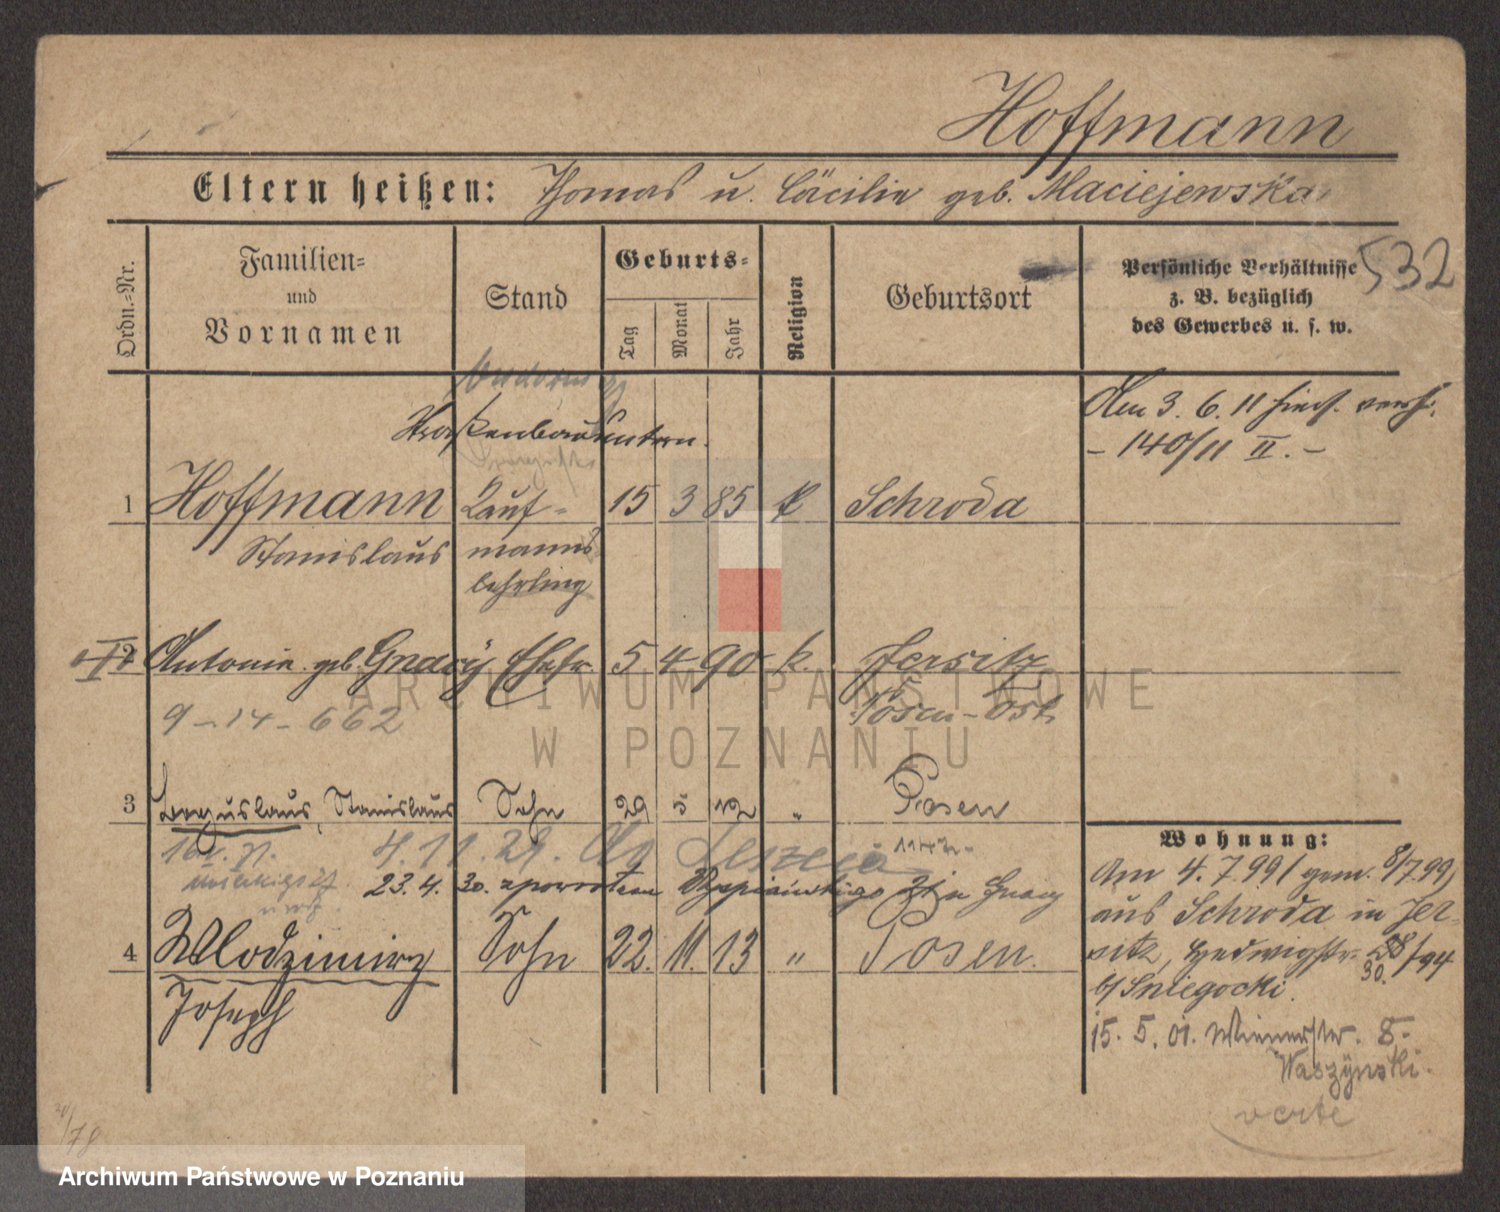 Hoffmann
Eltern heißen: Thomas u. Cäcilie geb. Maciejewska
532
Ordn.-Nr.
Familien-
und
Vornamen
Stand
Geburts-
Tag
Monat
Jahr
Religion
Geburtsort
Persönliche Verhältnisse
z. B. bezüglich
des Gewerbes u. s. w.
Am 3. 6. 11
- 140/11 II. -
Straßenbau
1 Hoffmann Kauf- 15 3 85 k Schroda
Stanislaus manns
lehrling
2 Antonie geb. Ehefr. 5 4 90 k. Jersitz
9-14-662 Posen-Ost
3 Boguslaus, Stanislaus Sohn 29 5 12 " Posen
4. 11. 29.
23. 4. 30. z powrotem Wyspiańskiego
4 Wlodzimirz Sohn 22. 11. 13 " Posen.
Joseph
Wohnung:
Am 4. 7. 99 / gem. 8/7 99)
aus Schroda in Jer-
sitz, Hedwigstr.
30.
b/ Sniegocki.
15. 5. 01. Wienerstr. 8.
Waszynski.
verte
ARCHIWUM PAŃSTWOWE
W POZNANIU
Archiwum Państwowe w Poznaniu